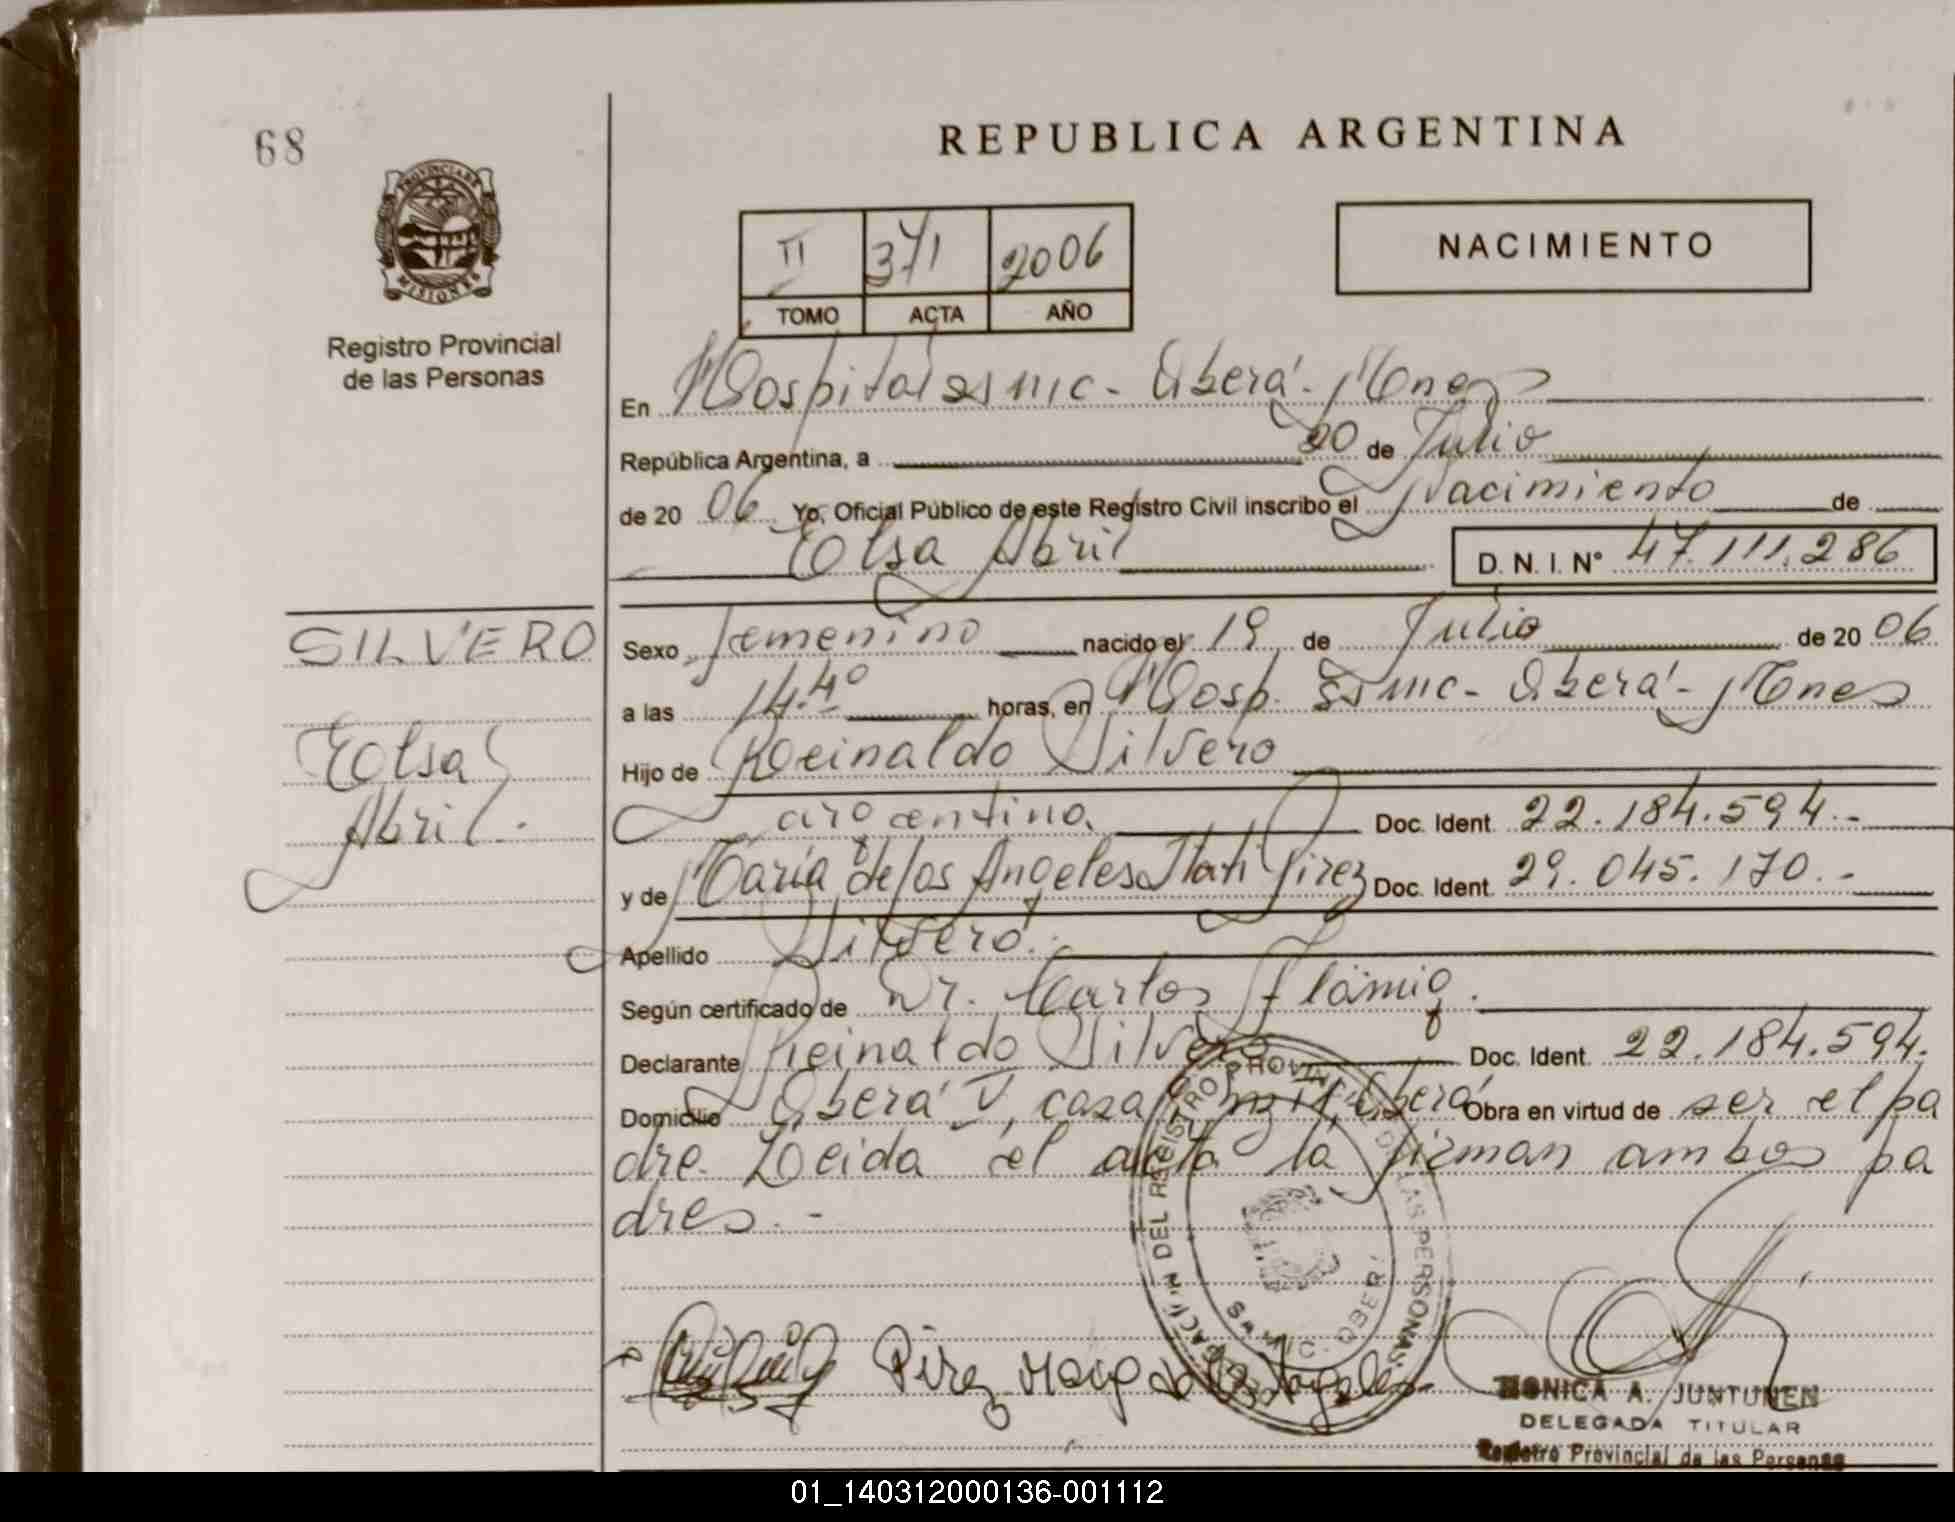 68
REPUBLICA ARGENTINA
PROVINCIA DE MISIONES
Registro Provincial
de las Personas
II 371 2006
TOMO ACTA AÑO
NACIMIENTO
En Hospital SAMIC - Oberá - Mnes
República Argentina, a 20 de Julio
de 2006 Yo, Oficial Público de este Registro Civil inscribo el Nacimiento de
Elsa Abril D. N. I. N° 47.111.286
SILVERO
Elsa
Abril.
Sexo femenino nacido el 19 de Julio de 2006
a las 14.40 horas, en Hosp. SAMIC - Oberá - Mnes
Hijo de Reinaldo Silvero
argentina Doc. Ident. 22.184.594.-
y de María de los Angeles Itatí Pirez Doc. Ident. 29.045.170.-
Apellido Silvero.
Según certificado de Dr. Carlos Flämig.
Declarante Reinaldo Silvero Doc. Ident. 22.184.594.
Domicilio Oberá V, casa Oberá Obra en virtud de ser el pa
dre. Leida el acta la firman ambos pa
dres.-
Pirez Angeles
DEL REGISTRO PROVINCIAL DE LAS PERSONAS
SAMIC. OBERÁ
MONICA A. JUNTUNEN
DELEGADA TITULAR
Registro Provincial de las Personas
01_140312000136-001112